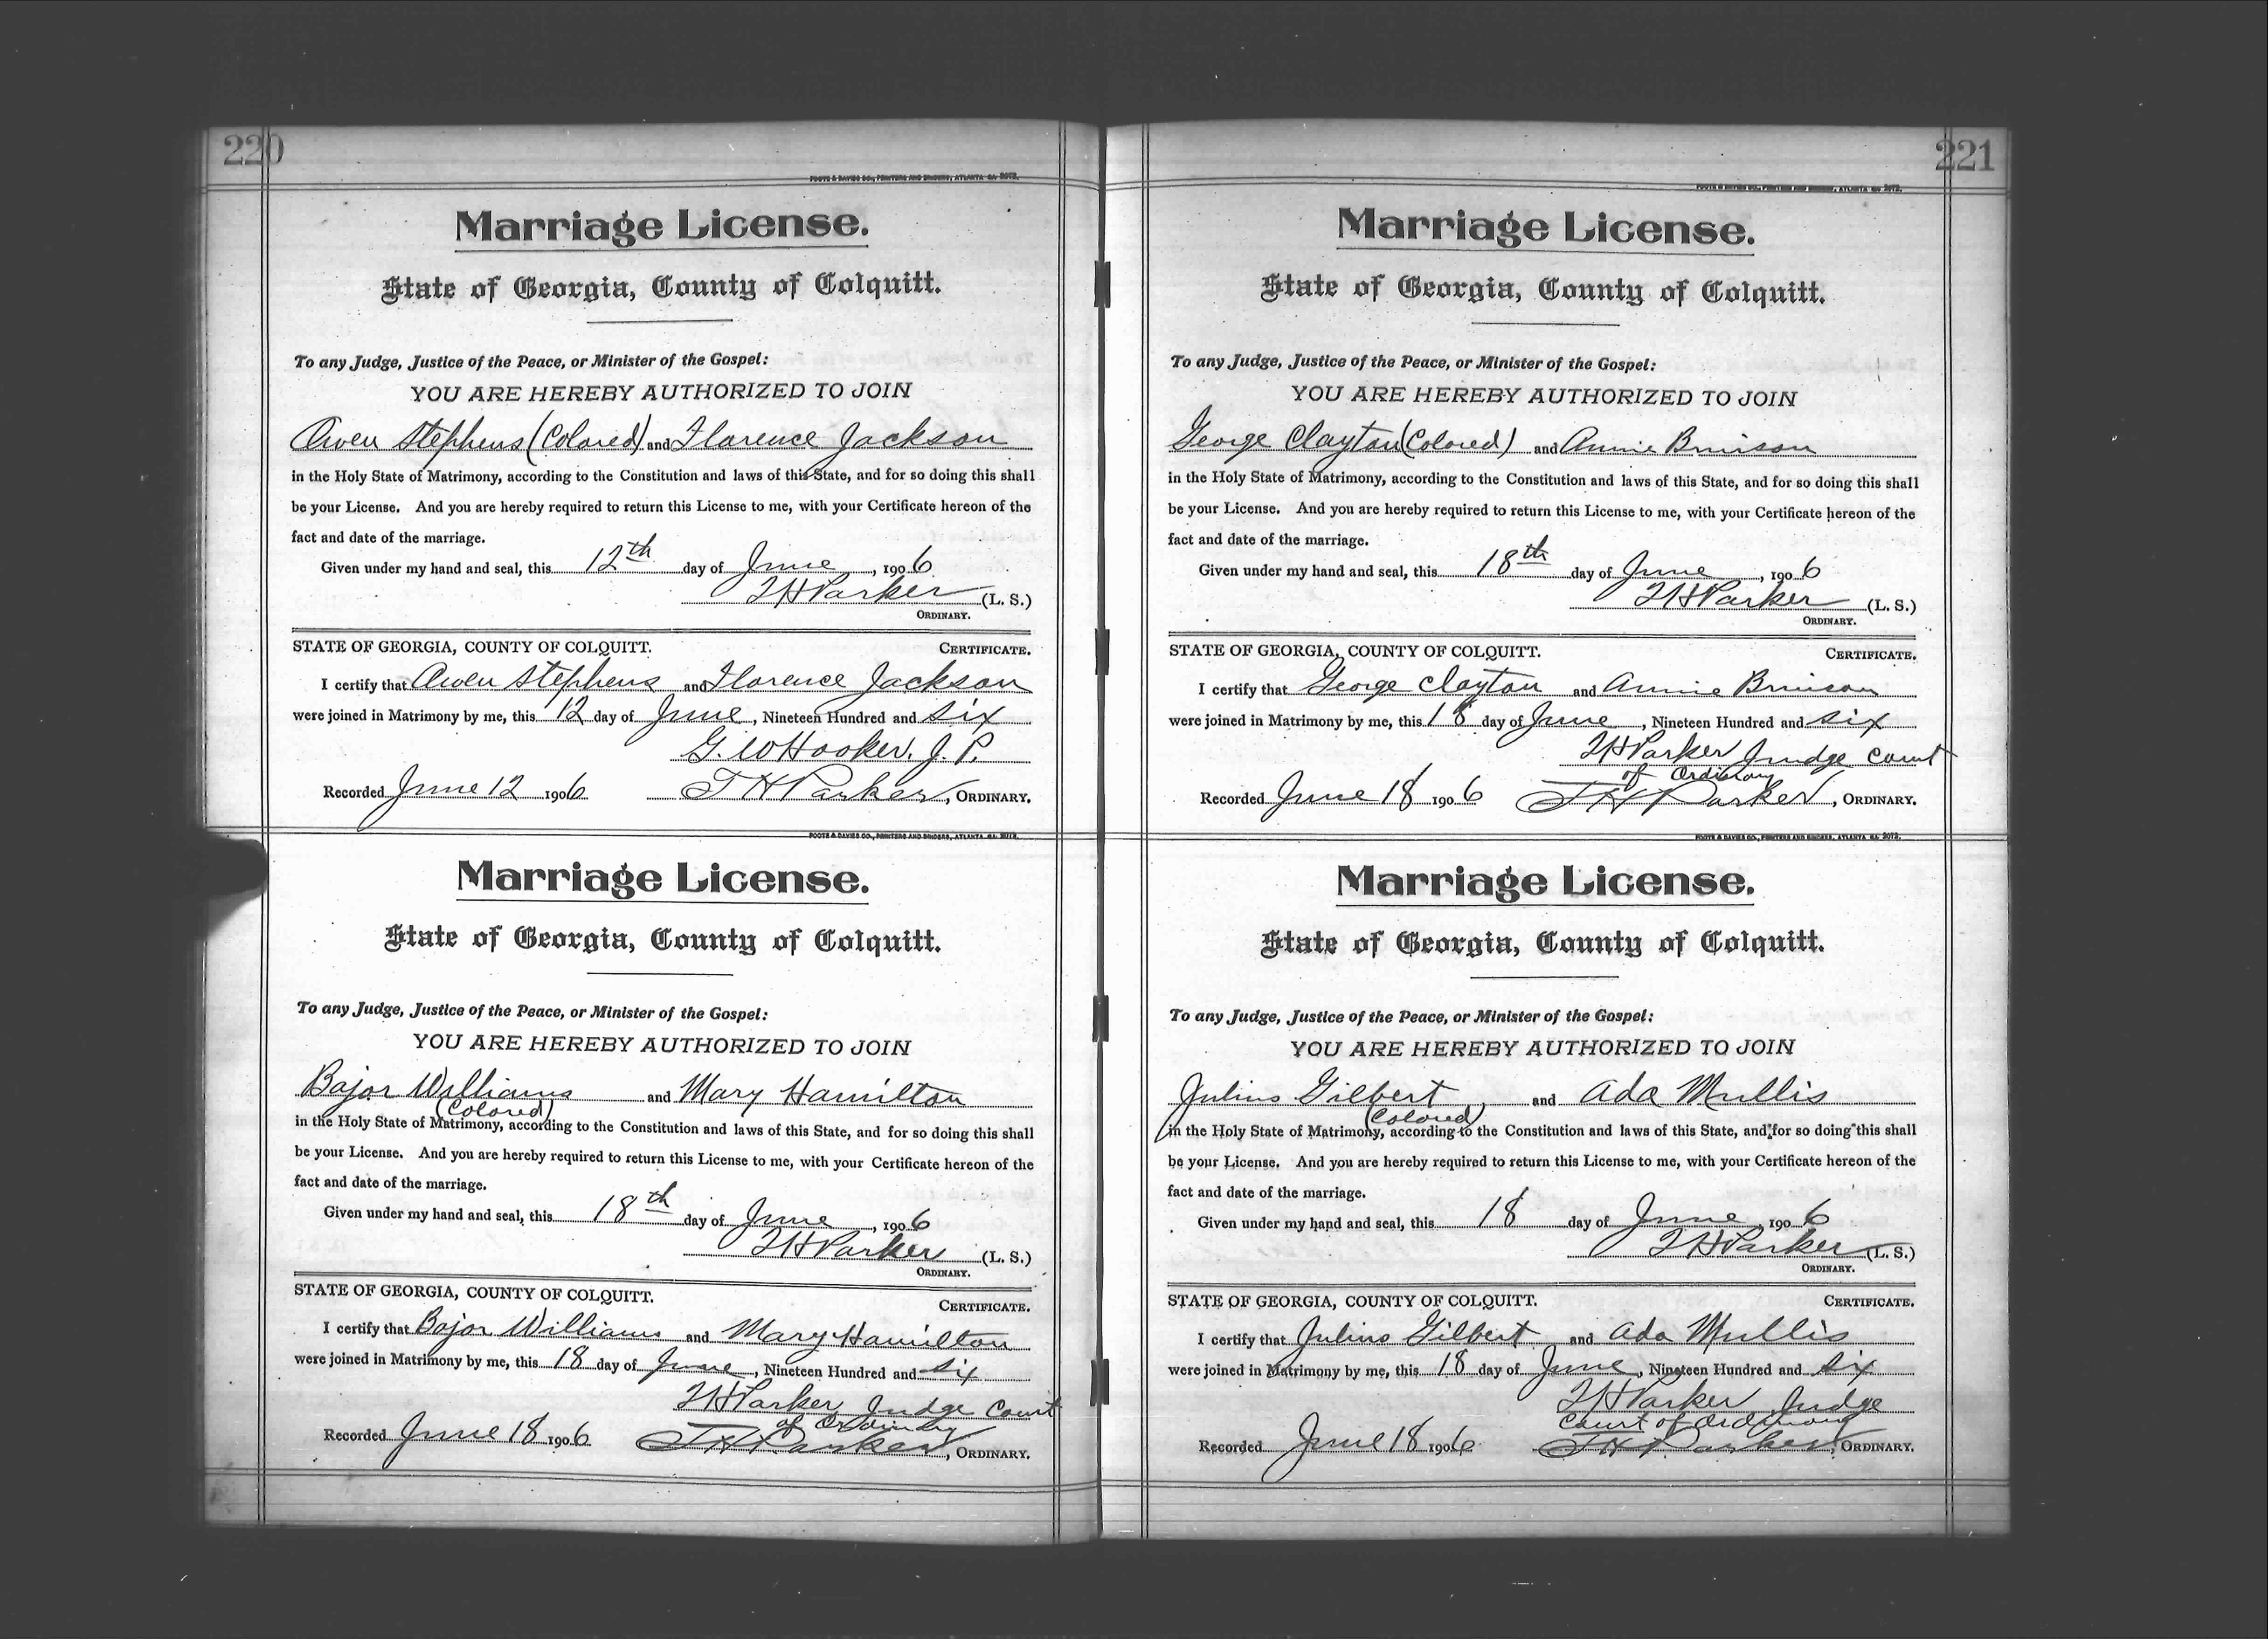 220
FOOTE & DAVIES CO., PRINTERS AND BINDERS, ATLANTA GA. 2072.
Marriage License.
State of Georgia, County of Colquitt.
To any Judge, Justice of the Peace, or Minister of the Gospel:
YOU ARE HEREBY AUTHORIZED TO JOIN
Owen Stephens (Colored) and Florence Jackson
in the Holy State of Matrimony, according to the Constitution and laws of this State, and for so doing this shall
be your License. And you are hereby required to return this License to me, with your Certificate hereon of the
fact and date of the marriage.
Given under my hand and seal, this 12th day of June, 1906
T H Parker (L. S.)
ORDINARY.
STATE OF GEORGIA, COUNTY OF COLQUITT. CERTIFICATE.
I certify that Owen Stephens and Florence Jackson
were joined in Matrimony by me, this 12 day of June, Nineteen Hundred and six
G. W Hooker, J. P.
Recorded June 12 1906 T H Parker, ORDINARY.
FOOTE & DAVIES CO., PRINTERS AND BINDERS, ATLANTA GA. 2072.
Marriage License.
State of Georgia, County of Colquitt.
To any Judge, Justice of the Peace, or Minister of the Gospel:
YOU ARE HEREBY AUTHORIZED TO JOIN
Bajor Williams and Mary Hamilton
(Colored)
in the Holy State of Matrimony, according to the Constitution and laws of this State, and for so doing this shall
be your License. And you are hereby required to return this License to me, with your Certificate hereon of the
fact and date of the marriage.
Given under my hand and seal, this 18th day of June, 1906
T H Parker (L. S.)
ORDINARY.
STATE OF GEORGIA, COUNTY OF COLQUITT. CERTIFICATE.
I certify that Bajor Williams and Mary Hamilton
were joined in Matrimony by me, this 18 day of June, Nineteen Hundred and six
T H Parker Judge Court
of Ordinary
Recorded June 18 1906 T H Parker, ORDINARY.
221
FOOTE & DAVIES CO., PRINTERS AND BINDERS, ATLANTA GA. 2072.
Marriage License.
State of Georgia, County of Colquitt.
To any Judge, Justice of the Peace, or Minister of the Gospel:
YOU ARE HEREBY AUTHORIZED TO JOIN
George Clayton (Colored) and Annie Brinson
in the Holy State of Matrimony, according to the Constitution and laws of this State, and for so doing this shall
be your License. And you are hereby required to return this License to me, with your Certificate hereon of the
fact and date of the marriage.
Given under my hand and seal, this 18th day of June, 1906
T H Parker (L. S.)
ORDINARY.
STATE OF GEORGIA, COUNTY OF COLQUITT. CERTIFICATE.
I certify that George Clayton and Annie Brinson
were joined in Matrimony by me, this 18 day of June, Nineteen Hundred and six
T H Parker Judge Court
of Ordinary
Recorded June 18 1906 T H Parker, ORDINARY.
FOOTE & DAVIES CO., PRINTERS AND BINDERS, ATLANTA GA. 2072.
Marriage License.
State of Georgia, County of Colquitt.
To any Judge, Justice of the Peace, or Minister of the Gospel:
YOU ARE HEREBY AUTHORIZED TO JOIN
Julius Gilbert and Ada Mullis
(Colored)
in the Holy State of Matrimony, according to the Constitution and laws of this State, and for so doing this shall
be your License. And you are hereby required to return this License to me, with your Certificate hereon of the
fact and date of the marriage.
Given under my hand and seal, this 18 day of June, 1906
T H Parker (L. S.)
ORDINARY.
STATE OF GEORGIA, COUNTY OF COLQUITT. CERTIFICATE.
I certify that Julius Gilbert and Ada Mullis
were joined in Matrimony by me, this 18 day of June, Nineteen Hundred and six
T H Parker Judge
Court of Ordinary
Recorded June 18 1906 T H Parker, ORDINARY.